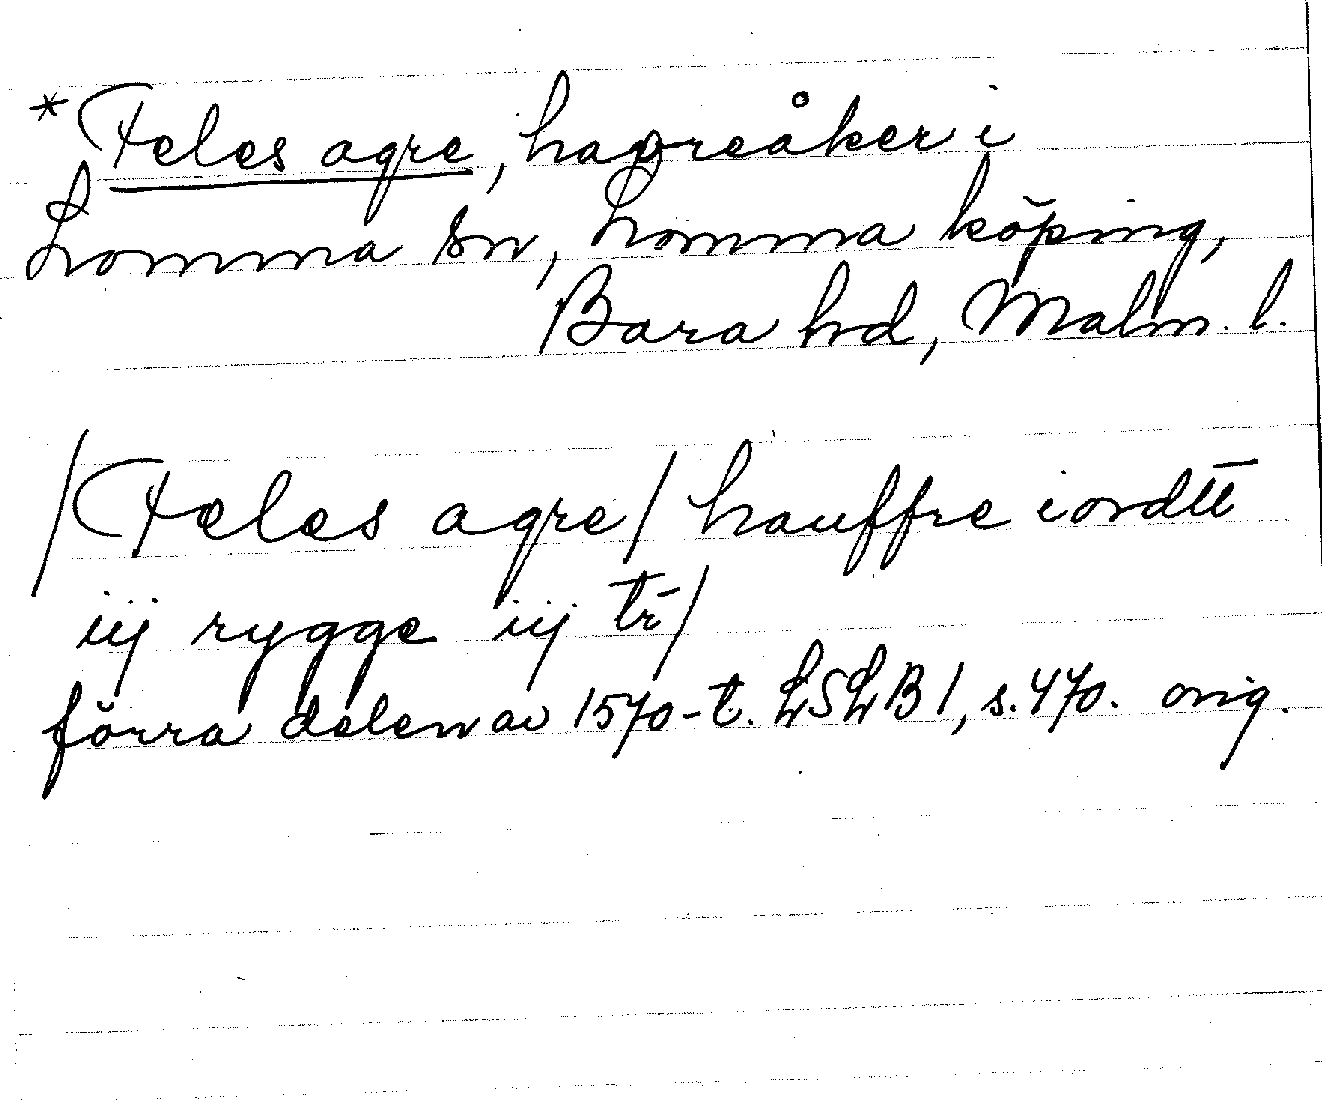 * Feles agre, havreåker i
Lomma sn, Lomma köping,
Bara hd, Malm. l.
/Feles agre/ hauffre iordtt
iij rygge iij tr/
förra delen av 1570-t. LSLB 1, s. 470. orig.